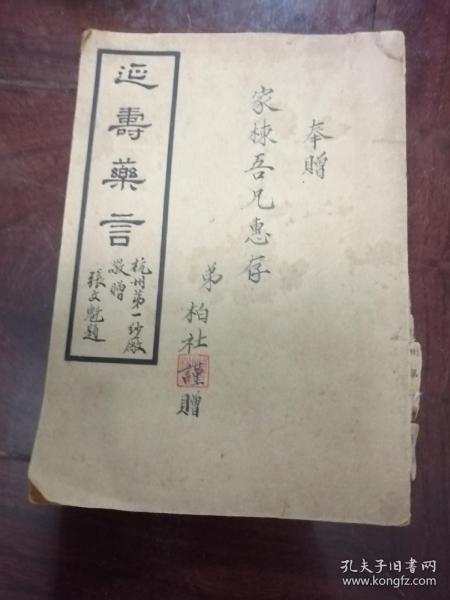 奉贈
家棟吾兄惠存
弟 柏社謹贈
延壽藥言
杭州第一紗廠
敬贈
張文魁題
孔夫子旧书网
www.kongfz.com